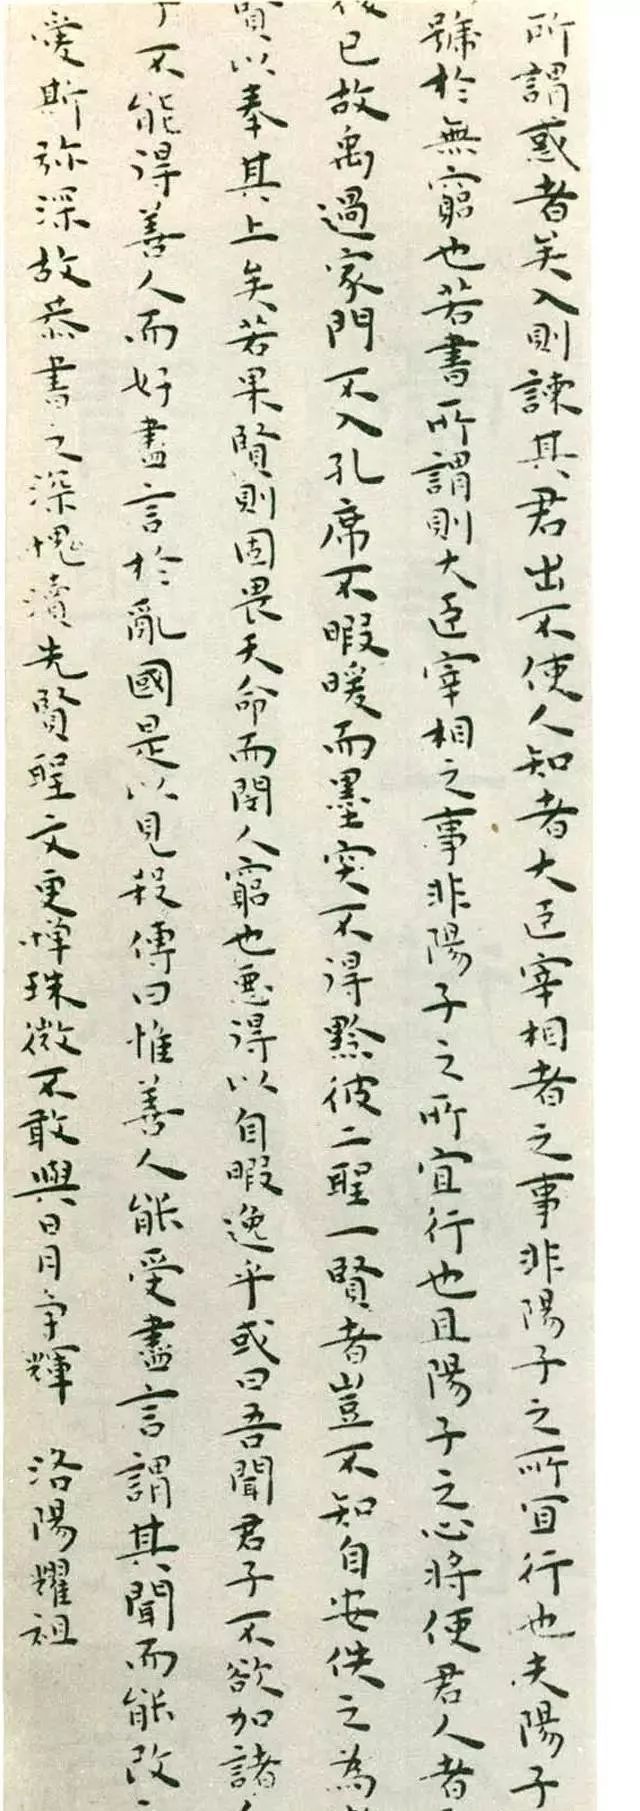 所謂惑者矣入則諫其君出不使人知者大臣宰相者之事非陽子之所宜行也夫陽子
號於無窮也若書所謂則大臣宰相之事非陽子之所宜行也且陽子之心將使君人者
後已故禹過家門不入孔席不暇暖而墨突不得黔彼二聖一賢者豈不知自安佚之為
賢以奉其上矣若果賢則固畏天命而閔人窮也惡得以自暇逸乎或曰吾聞君子不欲加諸人
不能得善人而好盡言於亂國是以見殺傳曰惟善人能受盡言謂其聞而能改之
愛斯弥深故恭書之深愧瀆先賢聖文更憚珠微不敢與日月争輝 洛陽耀祖